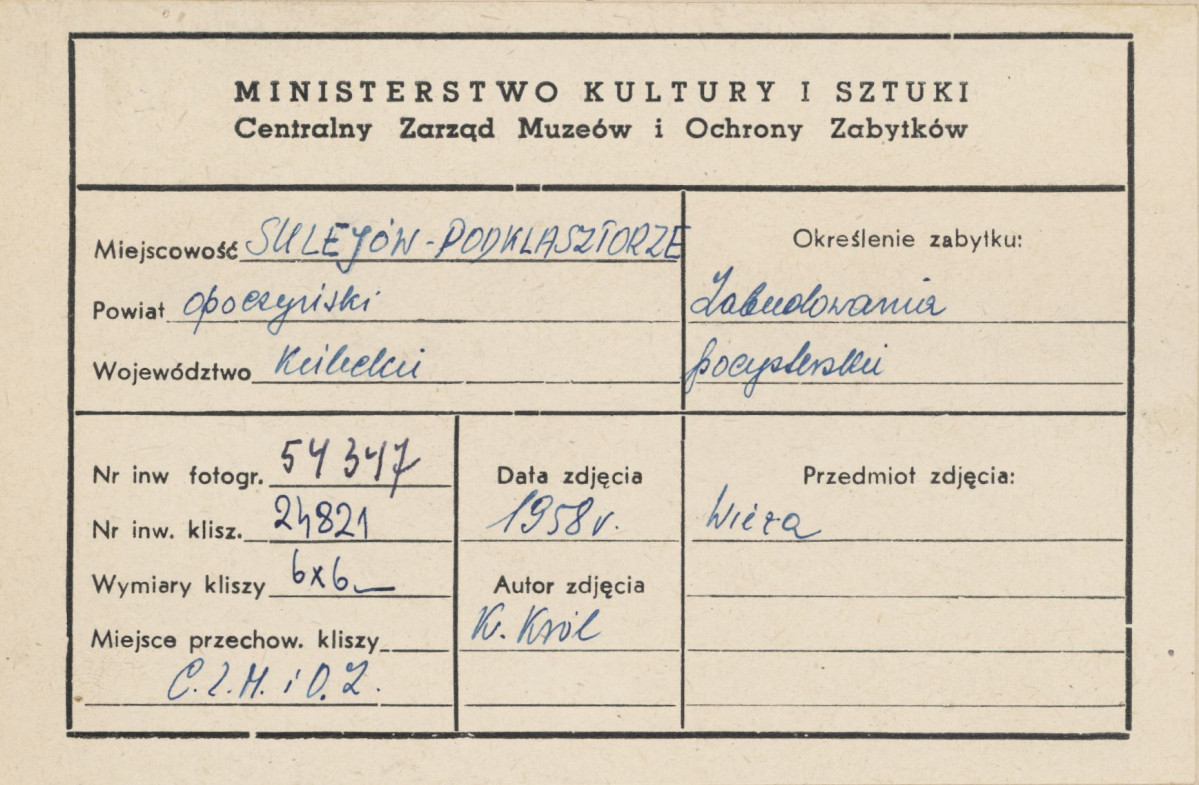 MINISTERSTWO KULTURY I SZTUKI
Centralny Zarząd Muzeów i Ochrony Zabytków
Miejscowość SULEJÓW-PODKLASZTORZE
Powiat opoczyński
Województwo Kieleckie
Określenie zabytku:
Zabudowania
pocysterskie
Nr inw fotogr. 54347
Nr inw. klisz. 24821
Wymiary kliszy 6x6
Miejsce przechow. kliszy
C.Z.M. i O.Z.
Data zdjęcia
1958 r.
Autor zdjęcia
K. Król
Przedmiot zdjęcia:
Wieża